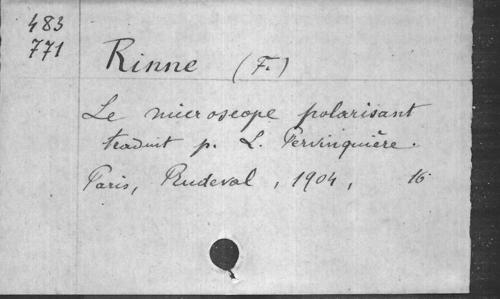 483
771
Rinne (F.)
Le microscope polarisant
traduit p. L. Pervinquière.
Paris, Rudeval, 1904, 16